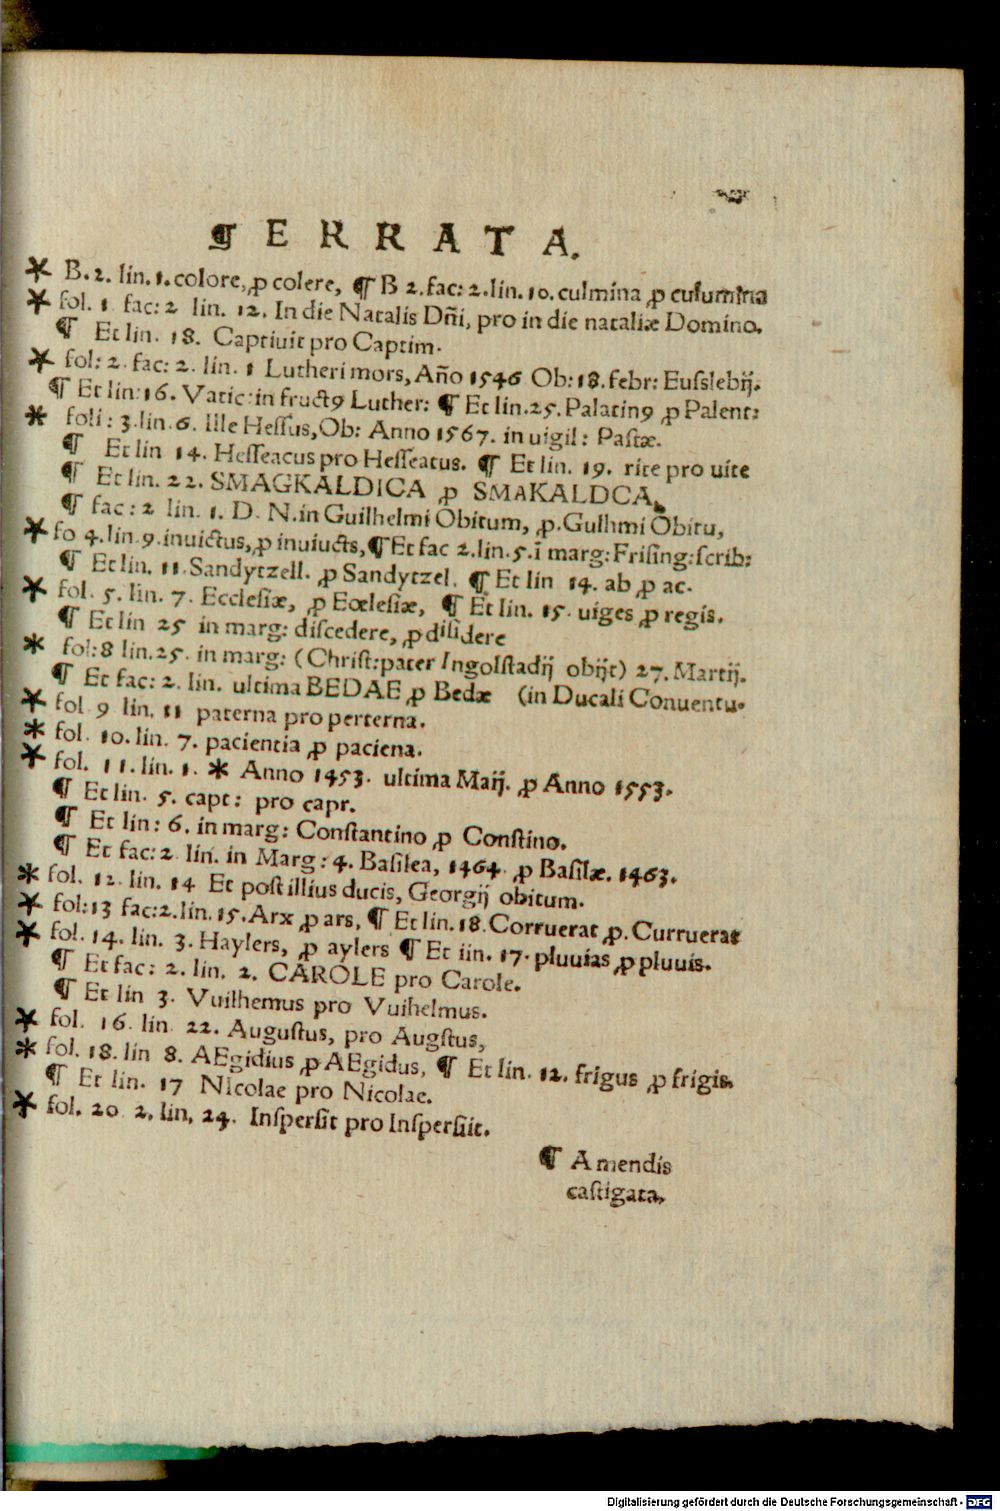 ¶ ERRATA.
* B. 2. lin. 1. colore, ꝓ colere, ¶ B 2. fac: 2. lin. 10. culmina ꝓ cuſumina
* fol. 1 fac: 2 lin. 12. In die Natalis Dñi, pro in die nataliæ Domino.
¶ Et lin. 18. Captiuit pro Captim.
* fol: 2. fac: 2. lin. 1 Lutheri mors, Año 1546 Ob: 18. febr: Euſslebij.
¶ Et lin: 16. Vatic: in fructꝰ Luther: ¶ Et lin. 25. Palatinꝰ ꝓ Palent:
* foli: 3. lin. 6. Ille Heſſus, Ob: Anno 1567. in uigil: Paſtæ.
¶ Et lin 14. Heſſeacus pro Heſſeatus. ¶ Et lin. 19. rite pro uite
¶ Et lin. 22. SMAGKALDICA ꝓ SMAKALDCA,
¶ fac: 2 lin. 1. D. N. in Guilhelmi Obitum, ꝓ. Gulhmi Obitu,
* fo 4. lin. 9. inuictus, ꝓ inuiucts, ¶ Et fac 2. lin. 5. ī marg: Friſing: ſcrib:
¶ Et lin. 11. Sandytzell. ꝓ Sandytzel. ¶ Et lin 14. ab ꝓ ac.
* fol. 5. lin. 7. Eccleſiæ, ꝓ Eœleſiæ, ¶ Et lin. 15. uiges ꝓ regis.
¶ Et lin 25 in marg: diſcedere, ꝓ diſidere
* fol: 8 lin. 25. in marg: (Chriſt: pater Ingolſtadij obijt) 27. Martij.
¶ Et fac: 2. lin. ultima BEDAE ꝓ Bedæ (in Ducali Conuentu.
* fol 9 lin. 11 paterna pro perterna.
* fol. 10. lin. 7. pacientia ꝓ paciena.
* fol. 11. lin. 1. * Anno 1453. ultima Maij. ꝓ Anno 1553.
¶ Et lin. 5. capt: pro capr.
¶ Et lin: 6. in marg: Conſtantino ꝓ Conſtino.
¶ Et fac: 2 lin. in Marg: 4. Baſilea, 1464 ꝓ Baſilæ. 1463.
* fol. 12. lin. 14 Et poſt illius ducis, Georgij obitum.
* fol: 13 fac: 2. lin. 15. Arx ꝓ ars, ¶ Et lin. 18. Corruerat ꝓ. Curruerat
* fol. 14. lin. 3. Haylers, ꝓ aylers ¶ Et iin. 17. pluuias ꝓ pluuis.
¶ Et fac: 2. lin. 2. CAROLE pro Carole.
¶ Et lin 3. Vuilhemus pro Vuihelmus.
* fol. 16. lin 22. Auguſtus, pro Augſtus,
* fol. 18. lin 8. AEgidius ꝓ AEgidus, ¶ Et lin. 12. frigus ꝓ frigis.
¶ Et lin. 17 NIcolae pro Nicolae.
* fol. 20 2. lin, 24. Inſperſit pro Inſperſiit.
¶ A mendis
caſtigata,
Digitalisierung gefördert durch die Deutsche Forschungsgemeinschaft - DFG